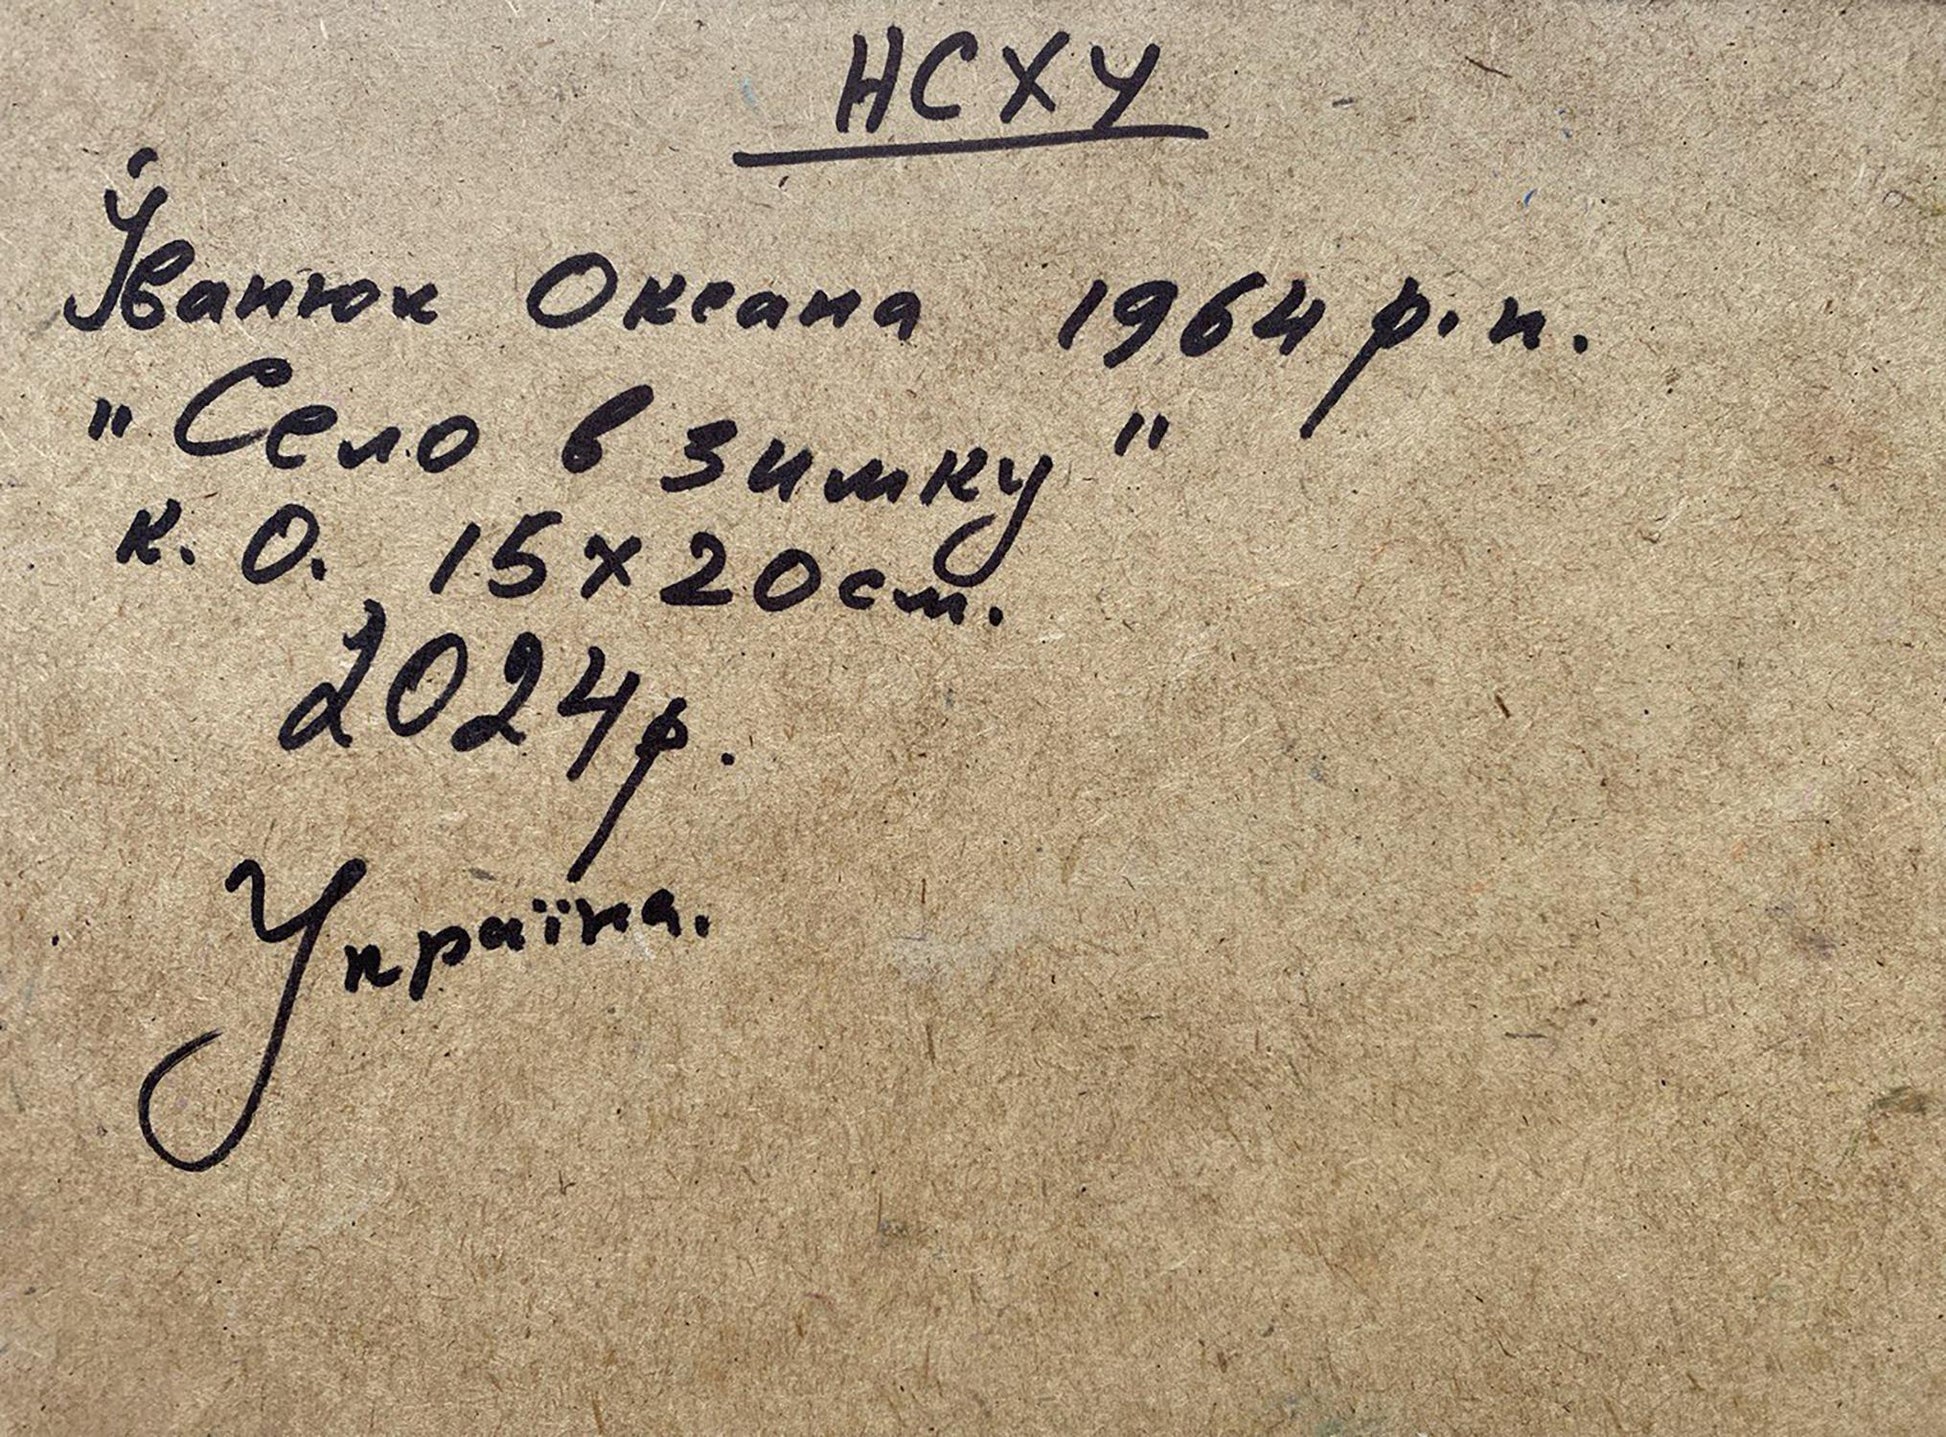 НСХУ
Іванюк Оксана 1964 р.н.
"Село взимку"
к. О. 15х20см.
2024р.
Україна.